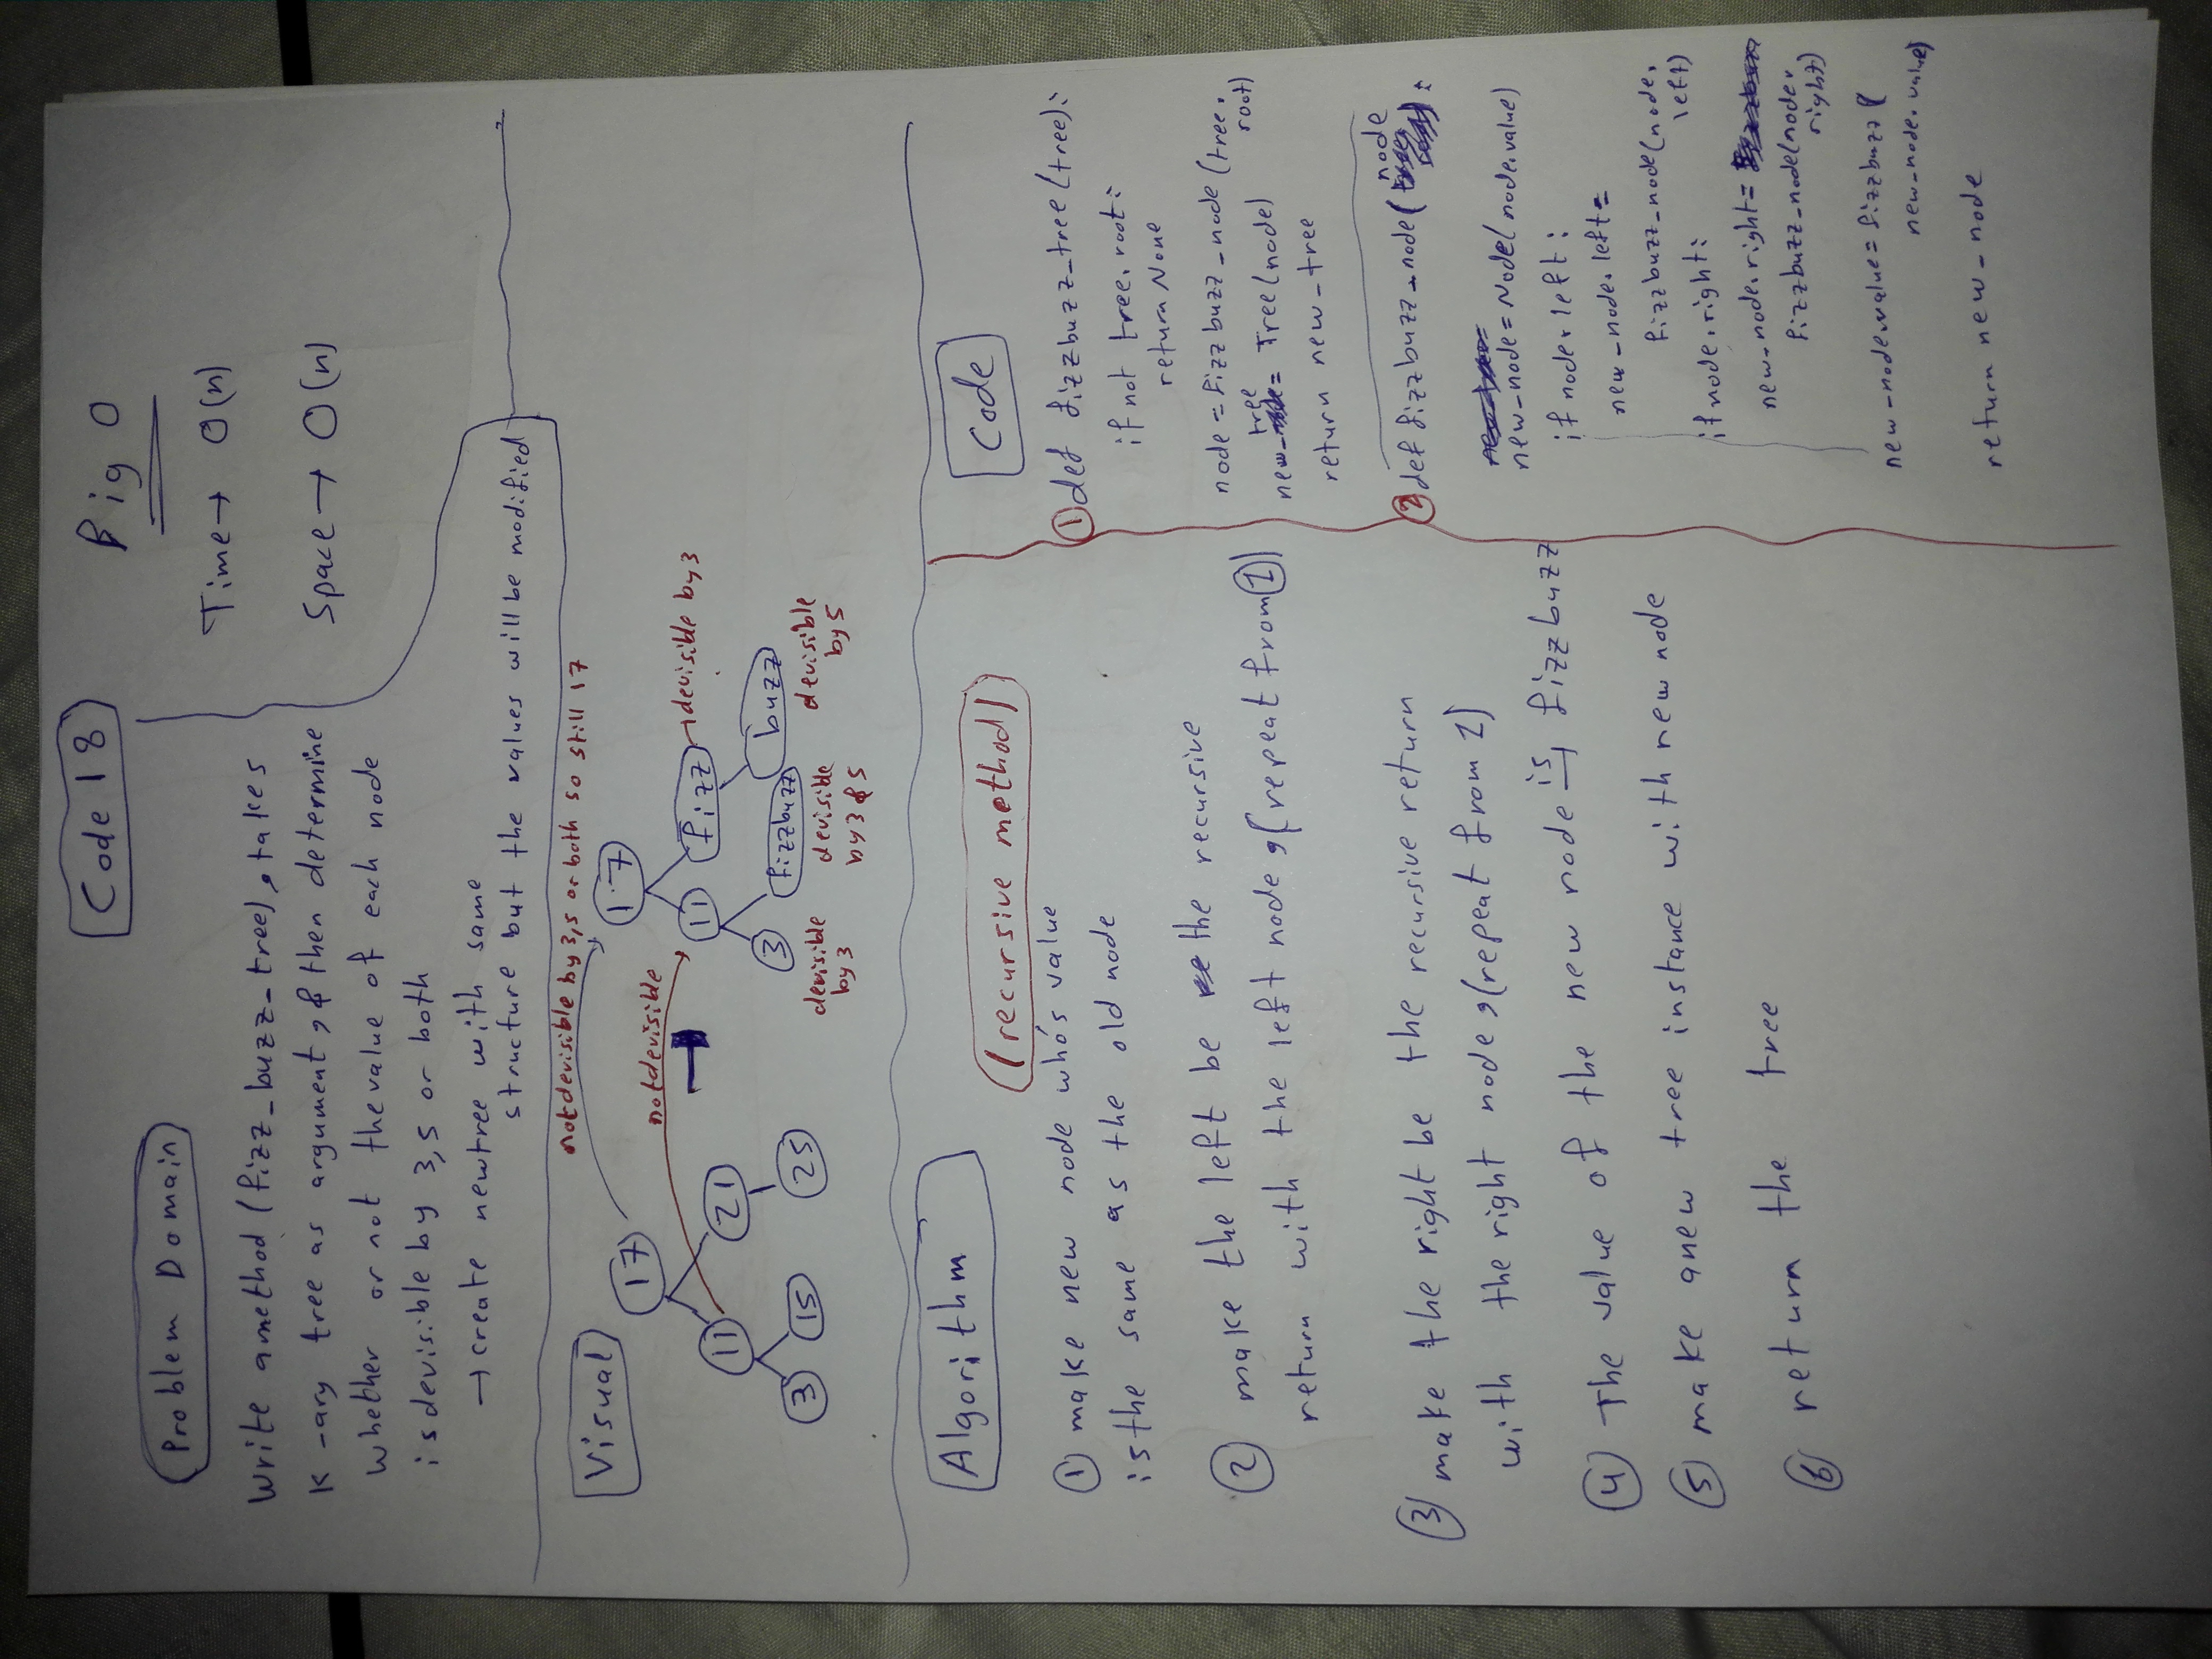 Code 18
Problem Domain
write amethod (fizz_buzz-tree), takes
K-ary tree as argument, & then determine
whether or not thevalue of each node
is devisible by 3,5 or both
→ create newtree with same
structure but the values will be modified
Big O
Time → O(n)
Space → O(n)
Visual
notdevisible by 3,5 or both so still 17
notdevisible
17
11
21
3
15
25
17
11
fizz
devisible by 3
3
fizzbuzz
buzz
devisible
by 3
devisible
by 3 & 5
devisible
by 5
Algorithm
(recursive method)
① make new node who's value
is the same as the old node
② make the left be the recursive
return with the left node, (repeat from 1)
③ make the right be the recursive return
with the right node, (repeat from 1)
④ The value of the new node is, fizzbuzz
⑤ make anew tree instance with new node
⑥ return the tree
Code
① def fizzbuzz-tree(tree):
if not tree.root:
return None
node = fizzbuzz-node(tree.
root)
new-tree = Tree(node)
return new-tree
② def fizzbuzz-node(node):
new-node = Node(node.value)
if node.left:
new-node.left =
fizzbuzz-node(node.
left)
if node.right:
new-node.right =
fizzbuzz-node(node.
right)
new-node.value = fizzbuzz(
new-node.value)
return new-node